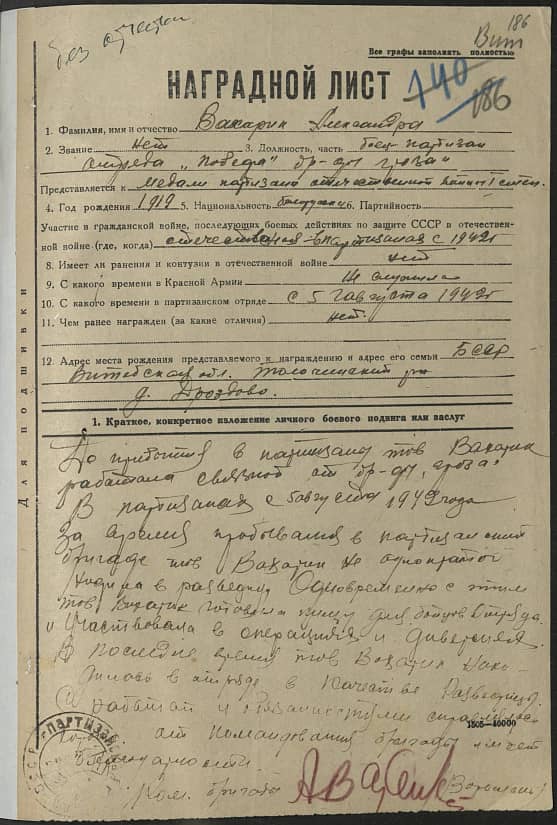 без отчества
186
Вит
Все графы заполнять полностью
НАГРАДНОЙ ЛИСТ
140
186
1. Фамилия, имя и отчество Вахарик Александра
2. Звание нет 3. Должность, часть боец-партизан
отряда "победа" бр-ды гроза"
Представляется к медали партизана отечественной войны I степ.
4. Год рождения 1919 5. Национальность 6. Партийность
Участие в гражданской войне, последующих боевых действиях по защите СССР в отечествен-
ной войне (где, когда) отечественная-в партизанах с 1942г
8. Имеет ли ранения и контузии в отечественной войне нет
9. С какого времени в Красной Армии не служила
10. С какого времени в партизанском отряде с 5 августа 1942г
11. Чем ранее награжден (за какие отличия) нет.
12. Адрес места рождения представляемого к награждению и адрес его семьи БССР
Витебская обл. Толочинский р-н
д. Дроздово.
Для подшивки
1. Краткое, конкретное изложение личного боевого подвига или заслуг
До прибытия в партизаны тов Вахарик
работала связной от бр-ды "гроза"
В партизанах с 5 августа 1942 года
За время пребывания в партизанской
бригаде тов Вахарик не однократно
ходила в разведку. Одновременно с этим
тов Вахарик готовила пищу для бойцов отряда
и участвовала в операциях и диверсиях.
В последнее время тов Вахарик нахо-
дилась в отряде в качестве разведчицы.
С работой и обязанностями справлялась
от командования бригады имеет
благодарности
1505—10000
ПАРТИЗАН
Ком. бригады